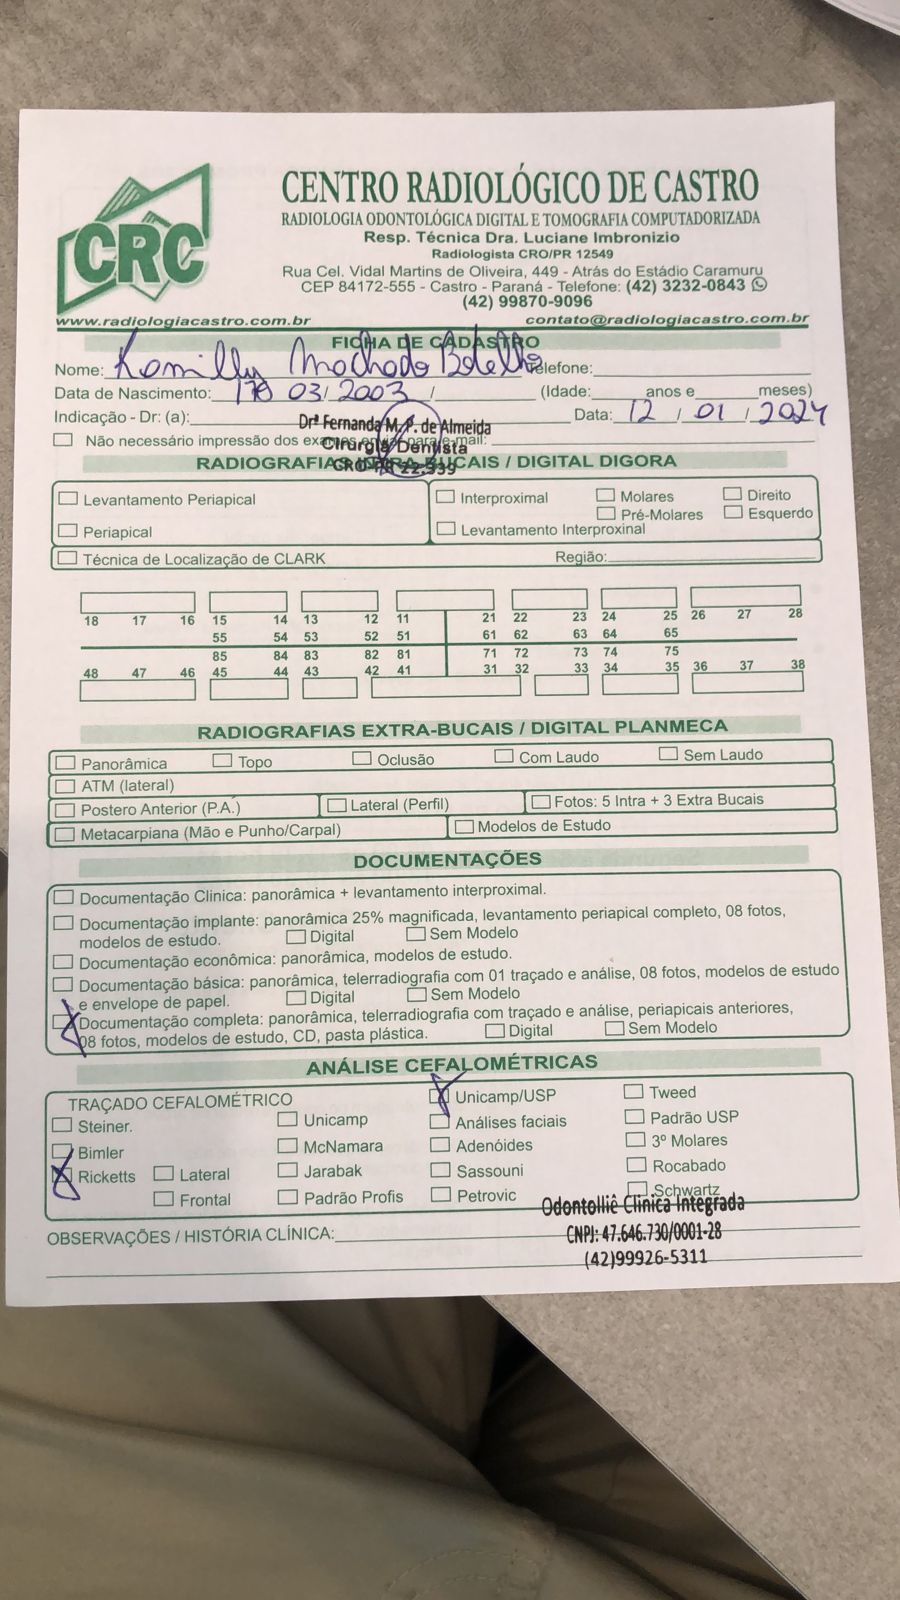 CRC
CENTRO RADIOLÓGICO DE CASTRO
RADIOLOGIA ODONTOLÓGICA DIGITAL E TOMOGRAFIA COMPUTADORIZADA
Resp. Técnica Dra. Luciane Imbronizio
Radiologista CRO/PR 12549
Rua Cel. Vidal Martins de Oliveira, 449 - Atrás do Estádio Caramuru
CEP 84172-555 - Castro - Paraná - Telefone: (42) 3232-0843
(42) 99870-9096
www.radiologiacastro.com.br contato@radiologiacastro.com.br
FICHA DE CADASTRO
Nome: Kamilly Machado Botelho Telefone:
Data de Nascimento: 03/2003 / (Idade: anos e meses)
Indicação - Dr: (a): Drª Fernanda M. P. de Almeida Data: 12 / 01 / 2024
Não necessário impressão dos exames, envio para e-mail:
Cirurgiã Dentista
CRO-PR 22.339
RADIOGRAFIAS INTRA-BUCAIS / DIGITAL DIGORA
Levantamento Periapical Interproximal Molares Direito
Pré-Molares Esquerdo
Periapical Levantamento Interproxinal
Técnica de Localização de CLARK Região:
18 17 16 15 14 13 12 11 21 22 23 24 25 26 27 28
55 54 53 52 51 61 62 63 64 65
85 84 83 82 81 71 72 73 74 75
48 47 46 45 44 43 42 41 31 32 33 34 35 36 37 38
RADIOGRAFIAS EXTRA-BUCAIS / DIGITAL PLANMECA
Panorâmica Topo Oclusão Com Laudo Sem Laudo
ATM (lateral)
Postero Anterior (P.A.) Lateral (Perfil) Fotos: 5 Intra + 3 Extra Bucais
Metacarpiana (Mão e Punho/Carpal) Modelos de Estudo
DOCUMENTAÇÕES
Documentação Clinica: panorâmica + levantamento interproximal.
Documentação implante: panorâmica 25% magnificada, levantamento periapical completo, 08 fotos,
modelos de estudo. Digital Sem Modelo
Documentação econômica: panorâmica, modelos de estudo.
Documentação básica: panorâmica, telerradiografia com 01 traçado e análise, 08 fotos, modelos de estudo
e envelope de papel. Digital Sem Modelo
Documentação completa: panorâmica, telerradiografia com traçado e análise, periapicais anteriores,
08 fotos, modelos de estudo, CD, pasta plástica. Digital Sem Modelo
ANÁLISE CEFALOMÉTRICAS
TRAÇADO CEFALOMÉTRICO Unicamp/USP Tweed
Steiner. Unicamp Análises faciais Padrão USP
Bimler McNamara Adenóides 3º Molares
Ricketts Lateral Jarabak Sassouni Rocabado
Frontal Padrão Profis Petrovic Schwartz
Odontolliê Clinica Integrada
OBSERVAÇÕES / HISTÓRIA CLÍNICA:
CNPJ: 47.646.730/0001-28
(42)99926-5311